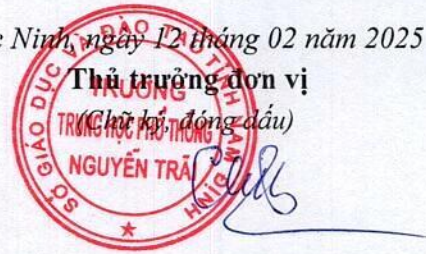 Ninh, ngày 12 tháng 02 năm 2025
Thủ trưởng đơn vị
(Chữ ký, đóng dấu)
SỞ GIÁO DỤC VÀ ĐÀO TẠO TỈNH NAM ĐỊNH
TRƯỜNG
TRUNG HỌC PHỔ THÔNG
NGUYỄN TRÃI